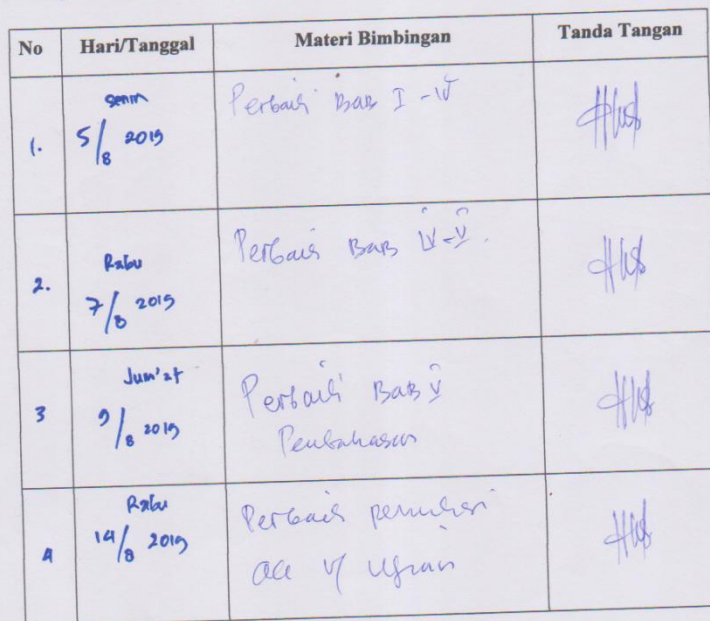 No Hari/Tanggal Materi Bimbingan Tanda Tangan
Senin
1. 5/8 2019
Perbaiki BAB I - IV
Rabu
2. 7/8 2019
Perbaiki BAB IV-V.
Jum'at
3 9/8 2019
Perbaiki BAB V
Pembahasan
Rabu
4 14/8 2019
Perbaiki penulisan
acc u/ ujian